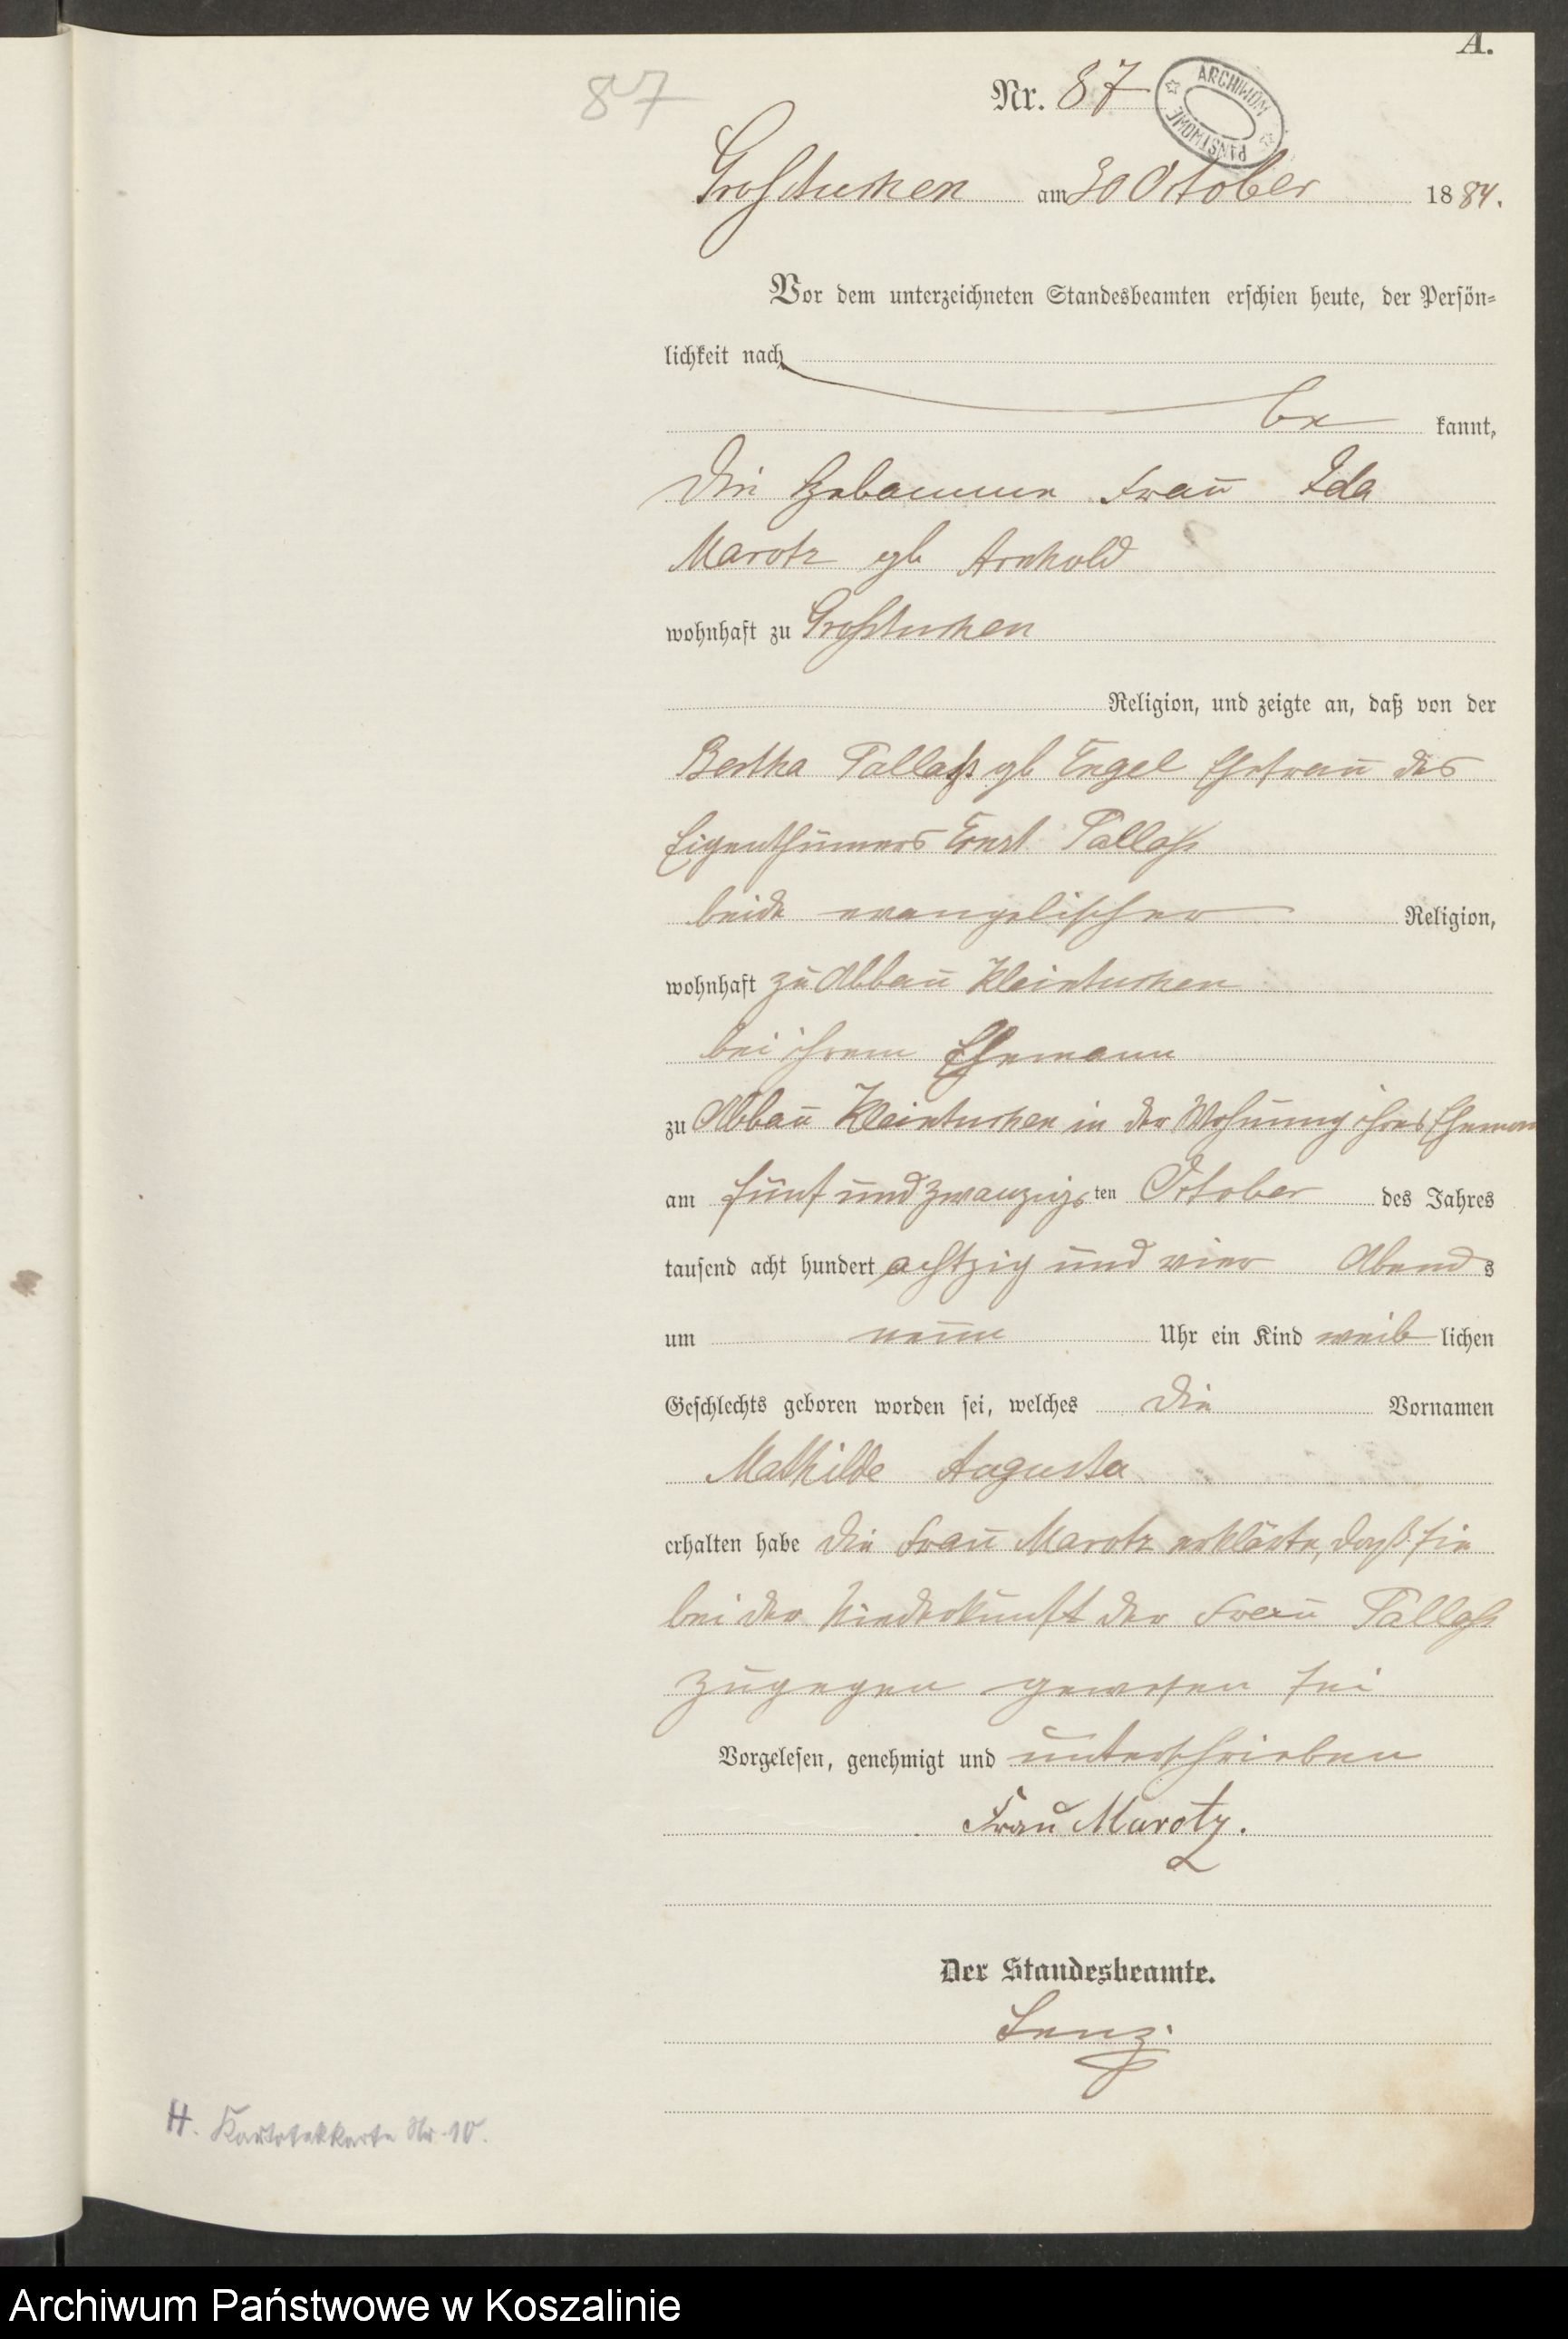 A.
87
Nr. 87
ARCHIWUM PAŃSTWOWE
Großtuchen am 30 October 1884.
Vor dem unterzeichneten Standesbeamten erschien heute, der Persön-
lichkeit nach
be kannt,
die Hebamme Frau Ida
Marotz gb Arnhold
wohnhaft zu Großtuchen
Religion, und zeigte an, daß von der
Bertha Pallaß gb Engel Ehefrau des
Eigenthümers Ernst Pallaß
beide evangelischer Religion,
wohnhaft zu Abbau Kleintuchen
bei ihrem Ehemann
zu Abbau Kleintuchen in der Wohnung ihres Eheman
am fünf und zwanzigs ten October des Jahres
tausend acht hundert achtzig und vier Abend s
um neun Uhr ein Kind weib lichen
Geschlechts geboren worden sei, welches die Vornamen
Mathilde Augusta
erhalten habe die Frau Marotz erklärte, daß sie
bei der Niederkunft der Frau Pallaß
zugegen gewesen sei
Vorgelesen, genehmigt und unterschrieben
Frau Marotz.
Der Standesbeamte.
Lenz.
H. Kartotekkarte Nr. 10.
Archiwum Państwowe w Koszalinie